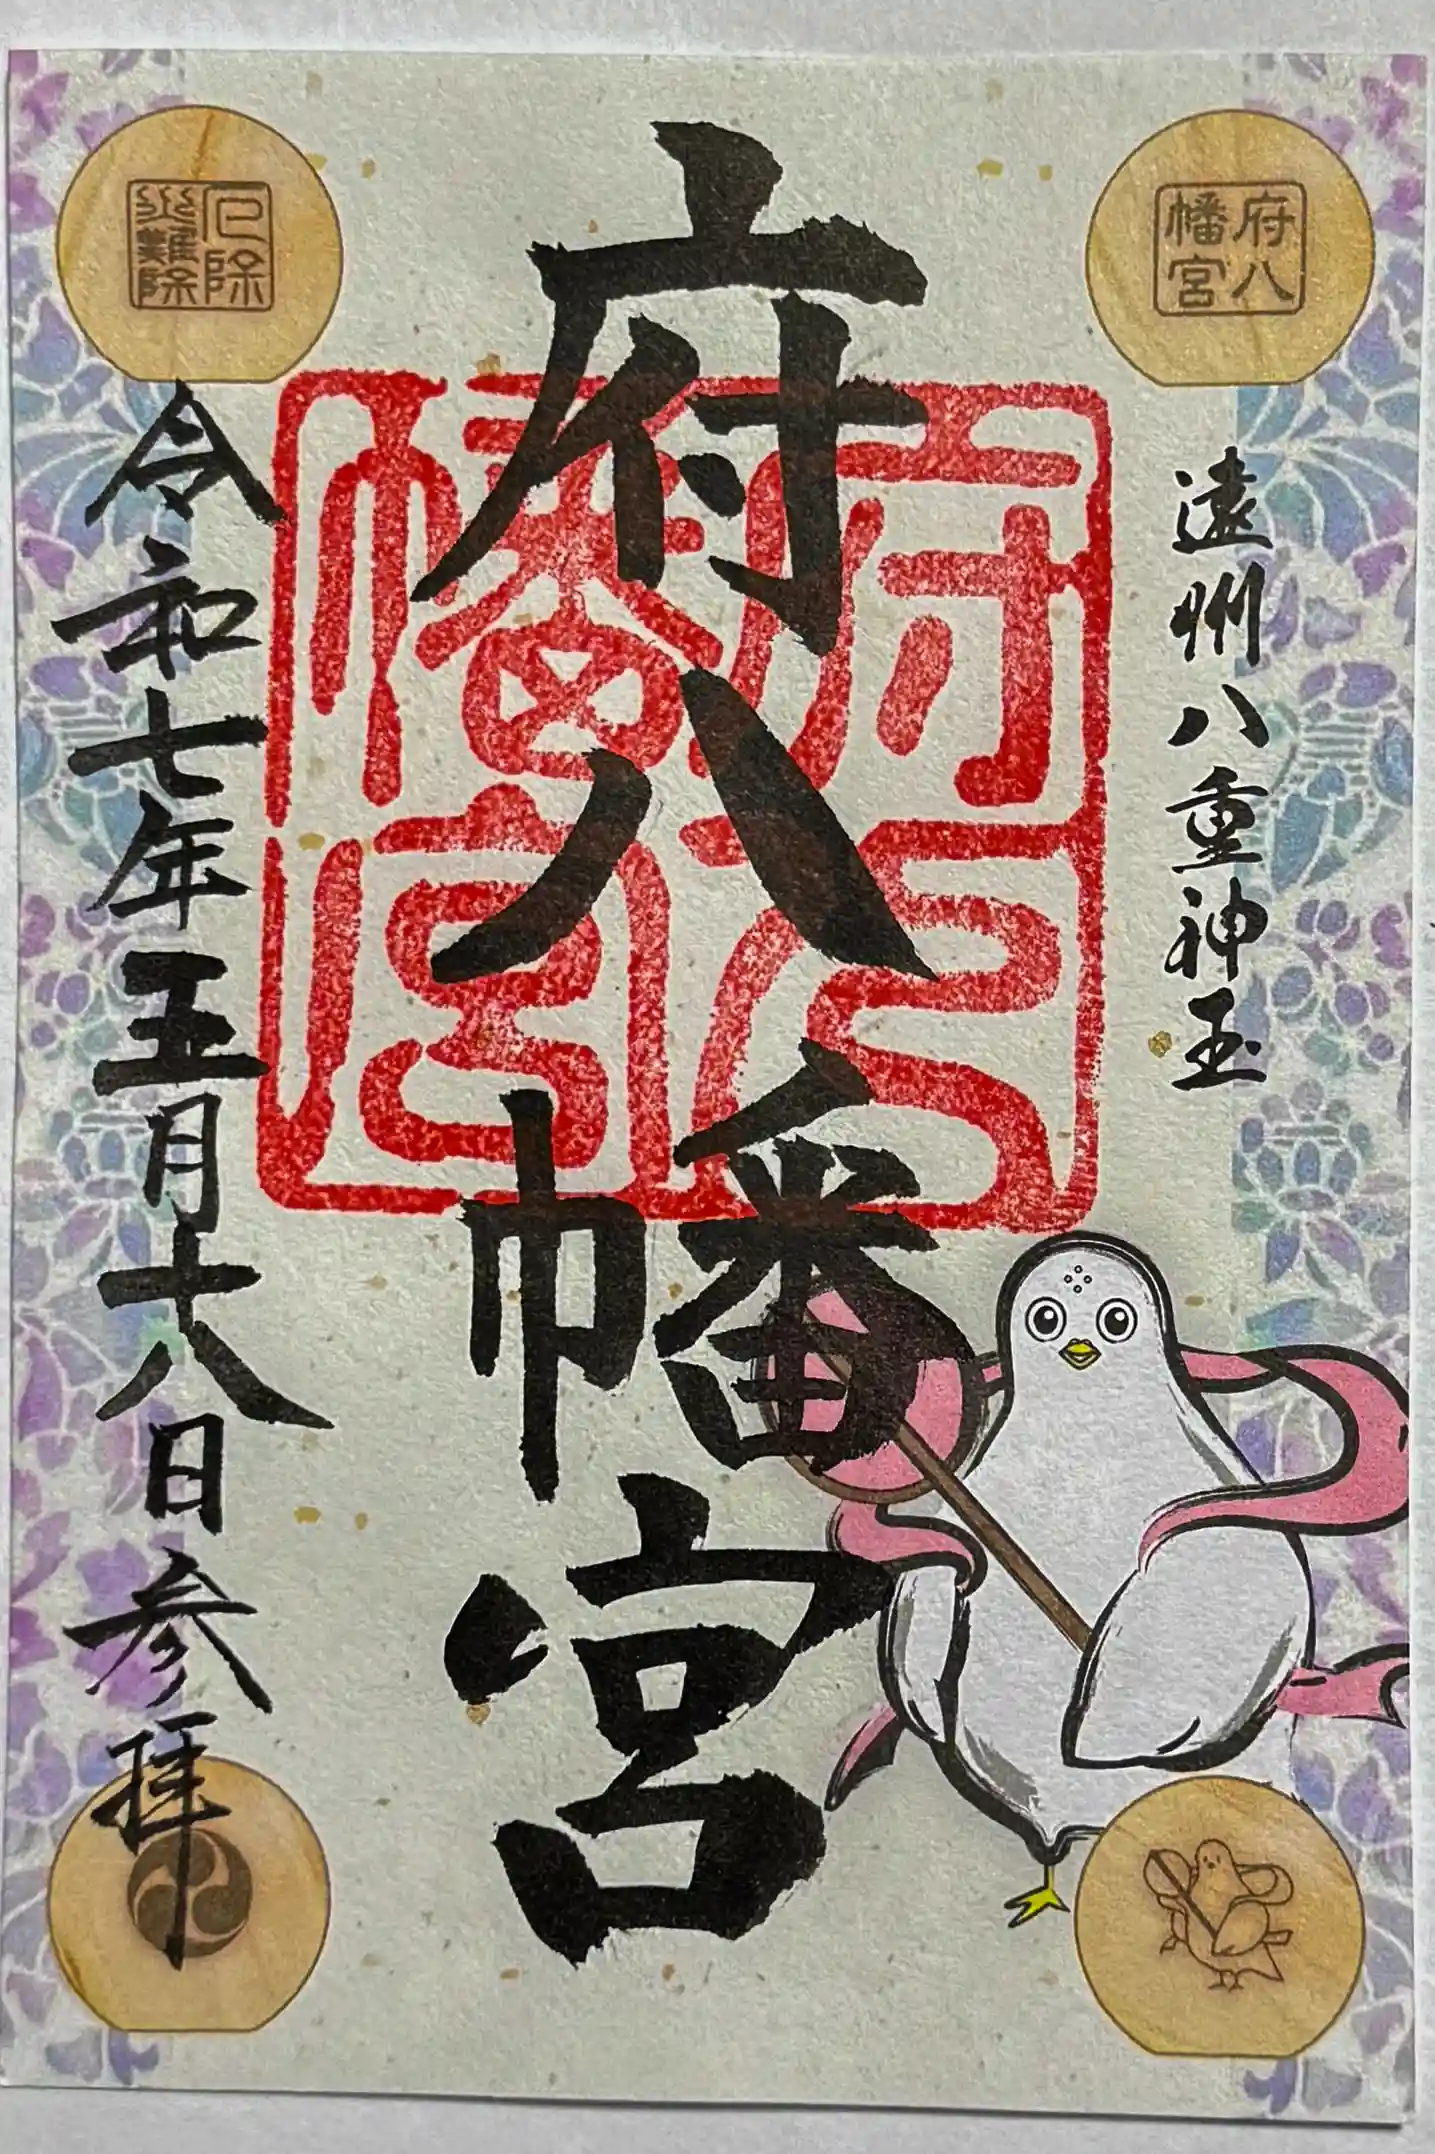 府八
幡宮
遠州八重神玉
府八幡宮
府八
幡宮
厄除
災難除
令和七年五月十八日参拝